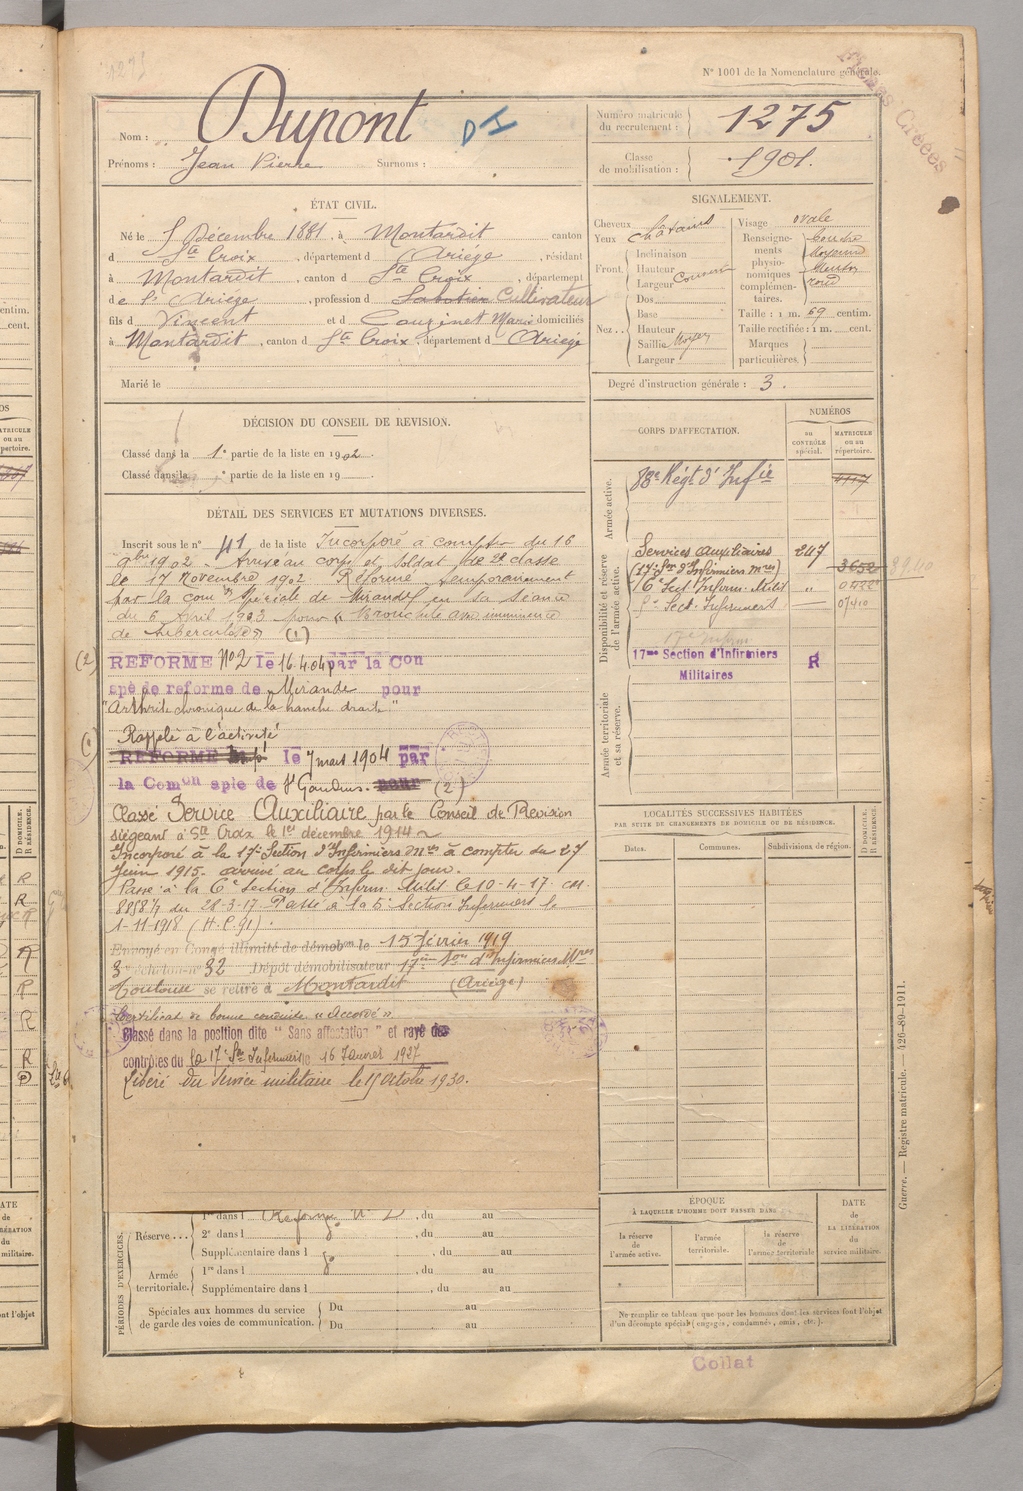 N° 1001 de la Nomenclature générale.
Nom : Dupont
Prénoms : Jean Pierre Surnoms :
Numéro matricule du recrutement : 1275
Classe de mobilisation : 1901.
ÉTAT CIVIL.
Né le 5 Décembre 1881, à Montardit canton
d Ste Croix, département d Ariège, résidant
à Montardit, canton d Ste Croix, département
de l'Ariège, profession d Sabotier Cultivateur
fils d Vincent et d Couzinet Marie domiciliés
à Montardit, canton d Ste Croix, département d Ariège
Marié le
SIGNALEMENT.
Cheveux châtains
Yeux
Front Inclinaison
Hauteur
Largeur
Nez Dos
Base
Hauteur
Saillie Moyen
Largeur
Visage ovale
Renseignements physionomiques complémentaires. Bouche
moyenne
Menton
rond
Taille : 1 m. 69 centim.
Taille rectifiée : 1 m. cent.
Marques particulières.
Degré d'instruction générale : 3.
DÉCISION DU CONSEIL DE REVISION.
Classé dans la 1e partie de la liste en 1902.
Classé dans la e partie de la liste en 19
DÉTAIL DES SERVICES ET MUTATIONS DIVERSES.
Inscrit sous le n° 41 de la liste Incorporé à compter du 16
9bre 1902. Arrivé au corps et Soldat de 2e classe
le 17 Novembre 1902. Réformé temporairement
par la com spéciale de Mirande en sa séance
du 6 Avril 1903 pour "Bronchite imminence
de tuberculose" (1)
(2) REFORME N°2 le 16.4.04 par la Con
spé de reforme de Mirande pour
"Arthrite chronique de la hanche droite"
(1) Rappelé à l'activité
REFORME le 7 mars 1904 par
la Comon sple de St Gaudens pour (2)
Classé Service Auxiliaire par le Conseil de Revision
siégeant à Ste Croix le 1er décembre 1914
Incorporé à la 17e Section d'Infirmiers Mres à compter du 27
Juin 1915. arrivé au corps le dit jour.
Passé à la 6e Section d'Infirm. Milit le 10-4-17 CM.
du 28-3-17 Passé à la 5e Section Infirmiers le
1-11-1918
Envoyé en Congé illimité de démobon le 15 février 1919
3e échelon n° 32 Dépôt démobilisateur 17ème Son d'Infirmiers Mres
Toulouse se retire à Montardit (Ariège)
Certificat de bonne conduite "Accordé".
Classé dans la position dite "Sans affectation" et rayé des
contrôles du la 17e Sn Infirmiers le 16 Janvier 1927
Libéré du service militaire le 15 Octobre 1930.
CORPS D'AFFECTATION.
NUMÉROS
au CONTRÔLE spécial.
MATRICULE ou au répertoire.
Armée active.
88e Régt d'Infie
Disponibilité et réserve de l'armée active.
Services auxiliaires 247
(17e Son d'Infirmiers Mres) 3652
6e Sect Infirm. Milit "
5e Sect. Infirmiers
17me Section d'Infirmiers R
Militaires
Armée territoriale et sa réserve.
LOCALITÉS SUCCESSIVES HABITÉES
PAR SUITE DE CHANGEMENTS DE DOMICILE OU DE RÉSIDENCE.
Dates. Communes. Subdivisions de région. D DOMICILE. R RÉSIDENCE.
PÉRIODES D'EXERCICES.
Réserve... 1re dans l Réformé n° 2, du au
2e dans l, du au
Supplémentaire dans l, du au
Armée territoriale. 1re dans l, du au
Supplémentaire dans l, du au
Spéciales aux hommes du service de garde des voies de communication. Du au
Du au
ÉPOQUE
À LAQUELLE L'HOMME DOIT PASSER DANS
la réserve de l'armée active.
l'armée territoriale.
la réserve de l'armée territoriale
DATE de LA LIBÉRATION du service militaire.
Ne remplir ce tableau que pour les hommes dont les services font l'objet
d'un décompte spécial (engagés, condamnés, omis, etc.).
Collat
Guerre. — Registre matricule. — 426-89-1911.